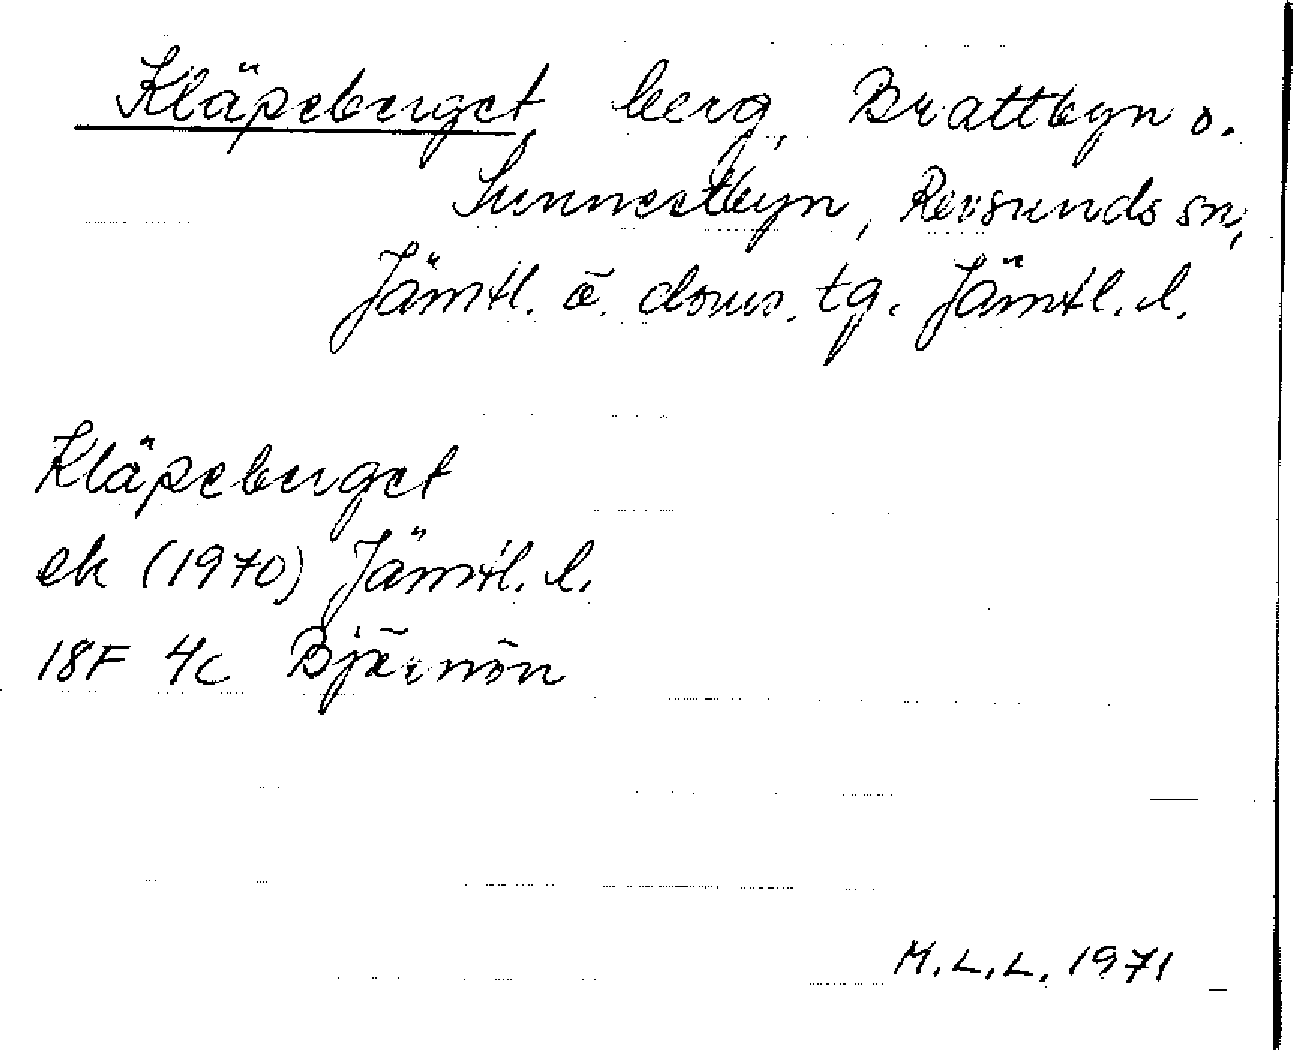 Kläpeberget, berg, Brattbyn o.
Sunnestbyn, Revsunds sn,
Jämtl. ö. doms. tg. Jämtl. l.
Kläpeberget
ek (1970) Jämtl. l.
18F 4c Bjärnön
M.L.L. 1971